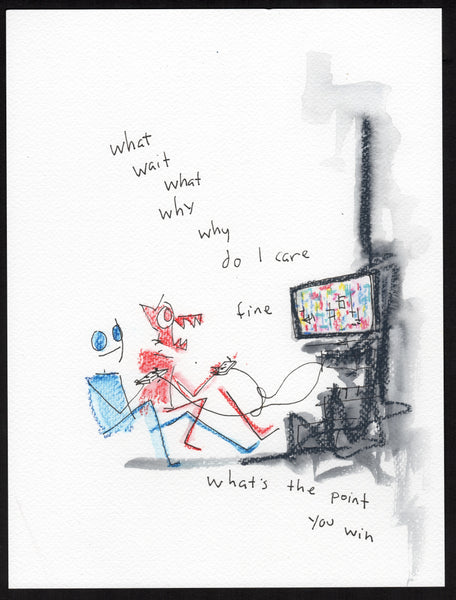 what
wait
what
why
why
do I care
fine
what's the point
you win